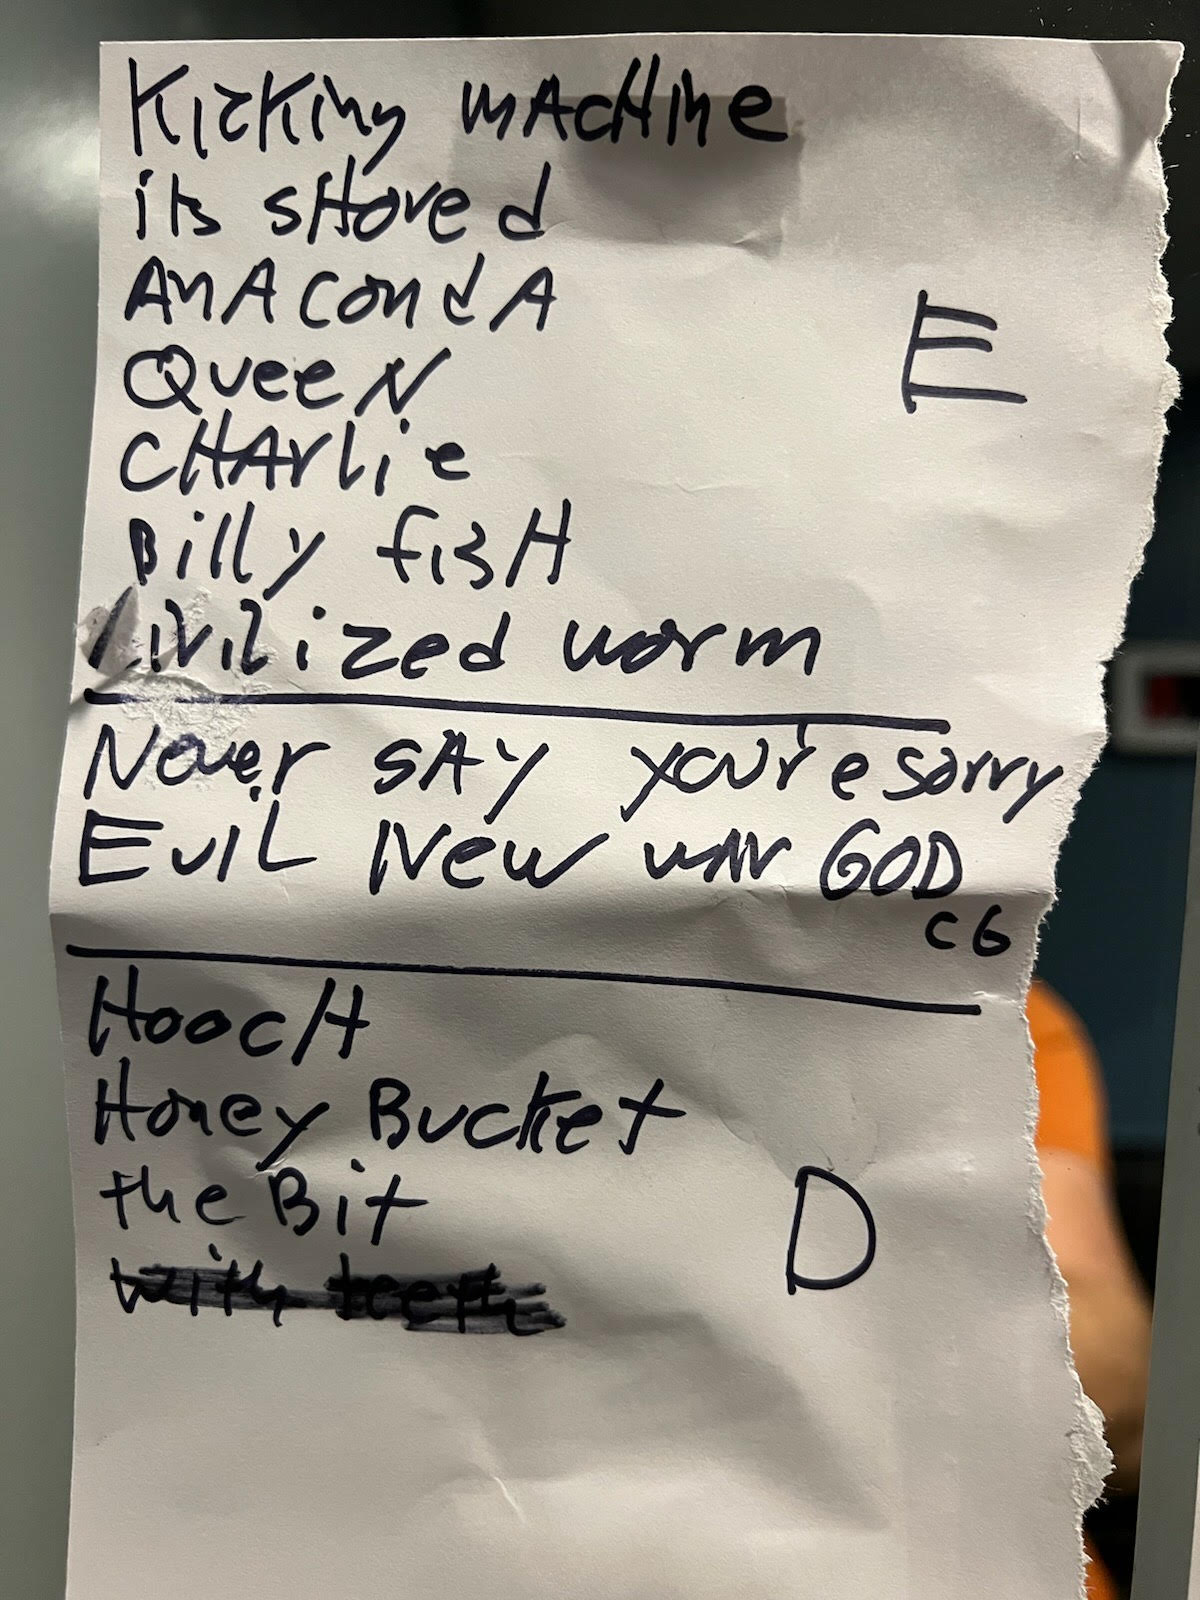 Kicking mAcHine
its sHoved
AnAcondA
E
QueeN
CHArlie
Billy fisH
Civilized worm
Never sAy you're sorry
EviL New wAr GOD
CG
HoocH
Honey Bucket
the Bit
D
with teeth